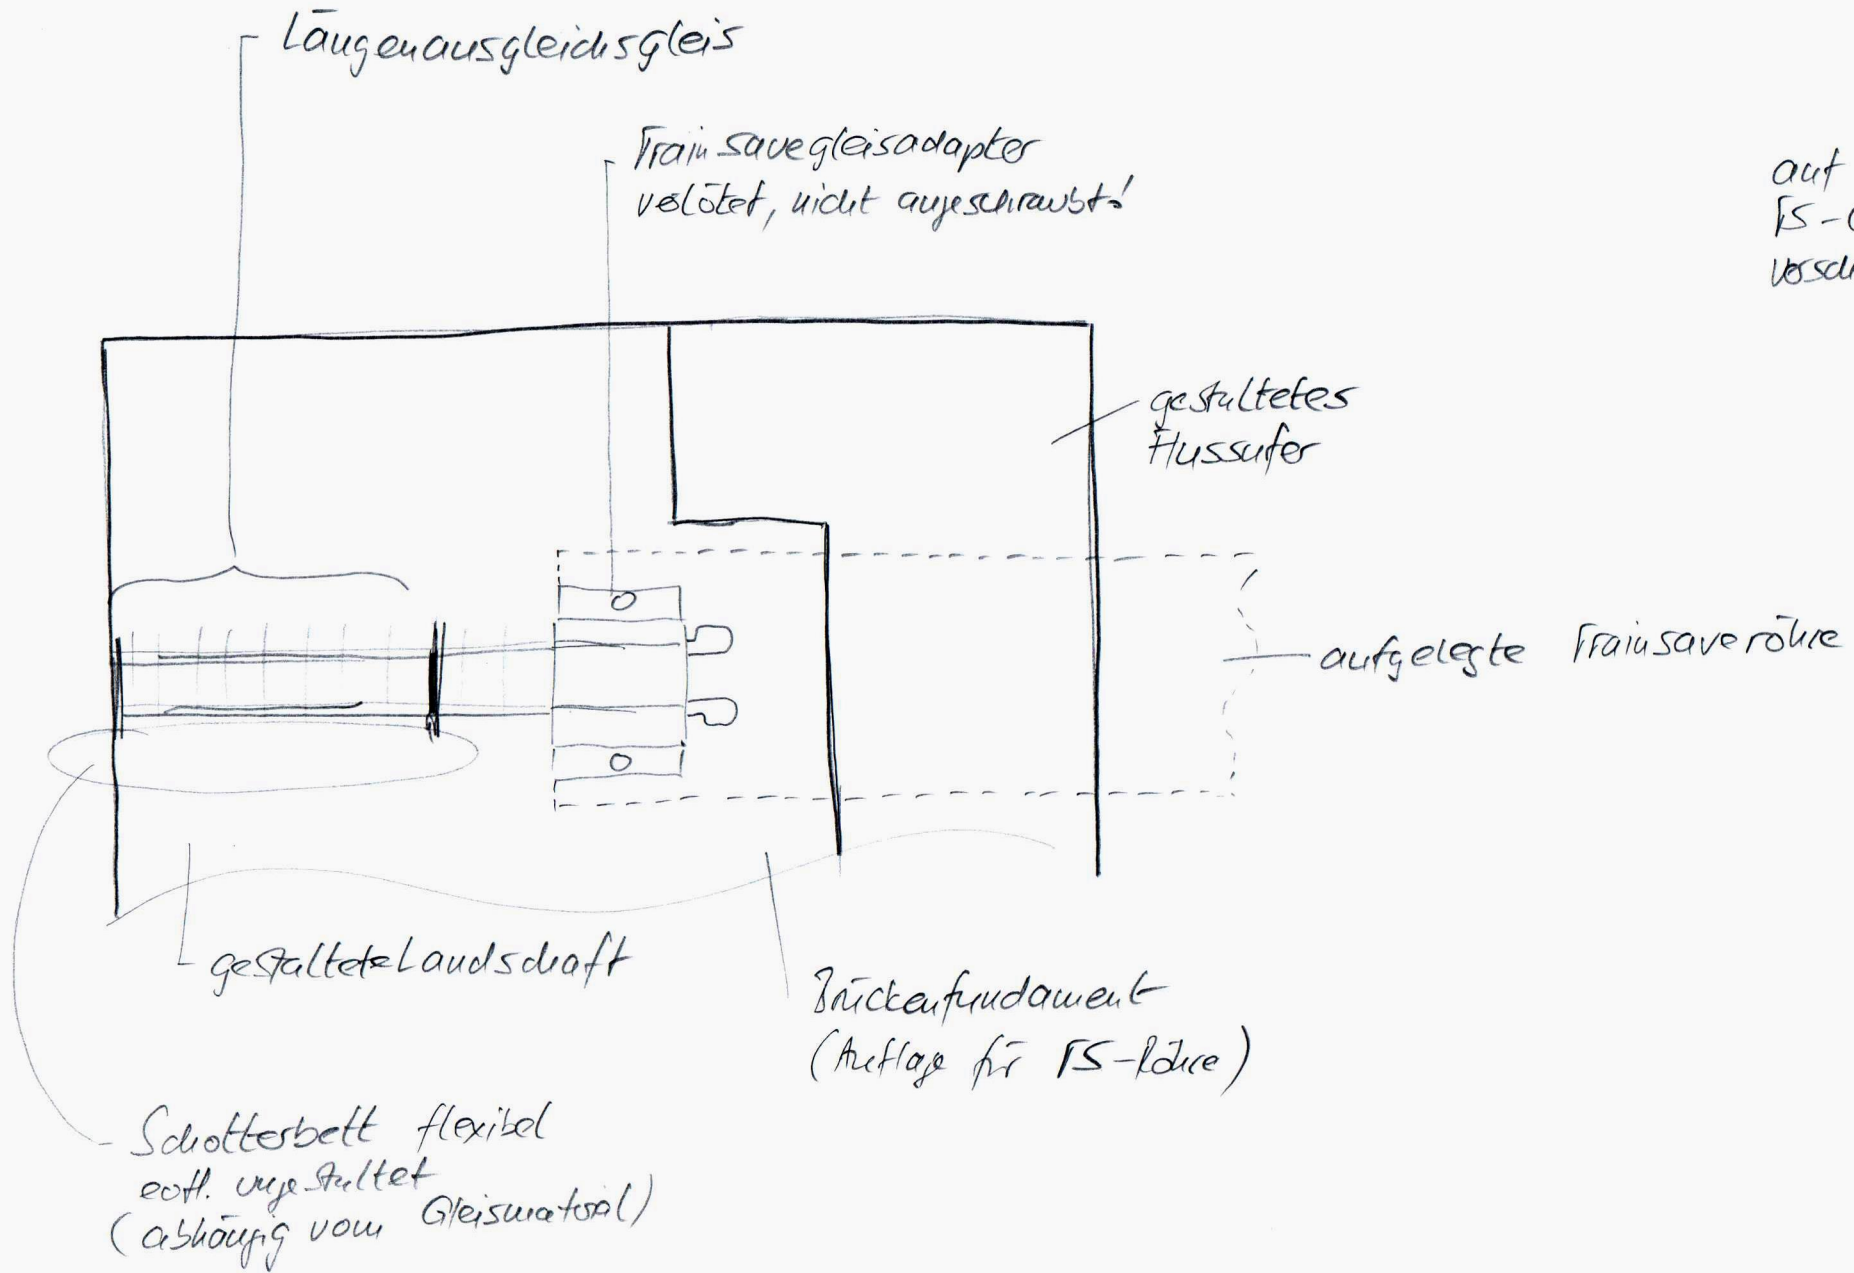 Längenausgleichsgleis
Trainsavegleisadapter
verlötet, nicht angeschraubt!
auf
TS-
versch
gestaltetes
Flussufer
aufgelegte Trainsaveröhre
gestaltete Landschaft
Brückenfundament
(Auflage für TS-Röhre)
Schotterbett flexibel
evtl. ungestaltet
(abhängig vom Gleismaterial)